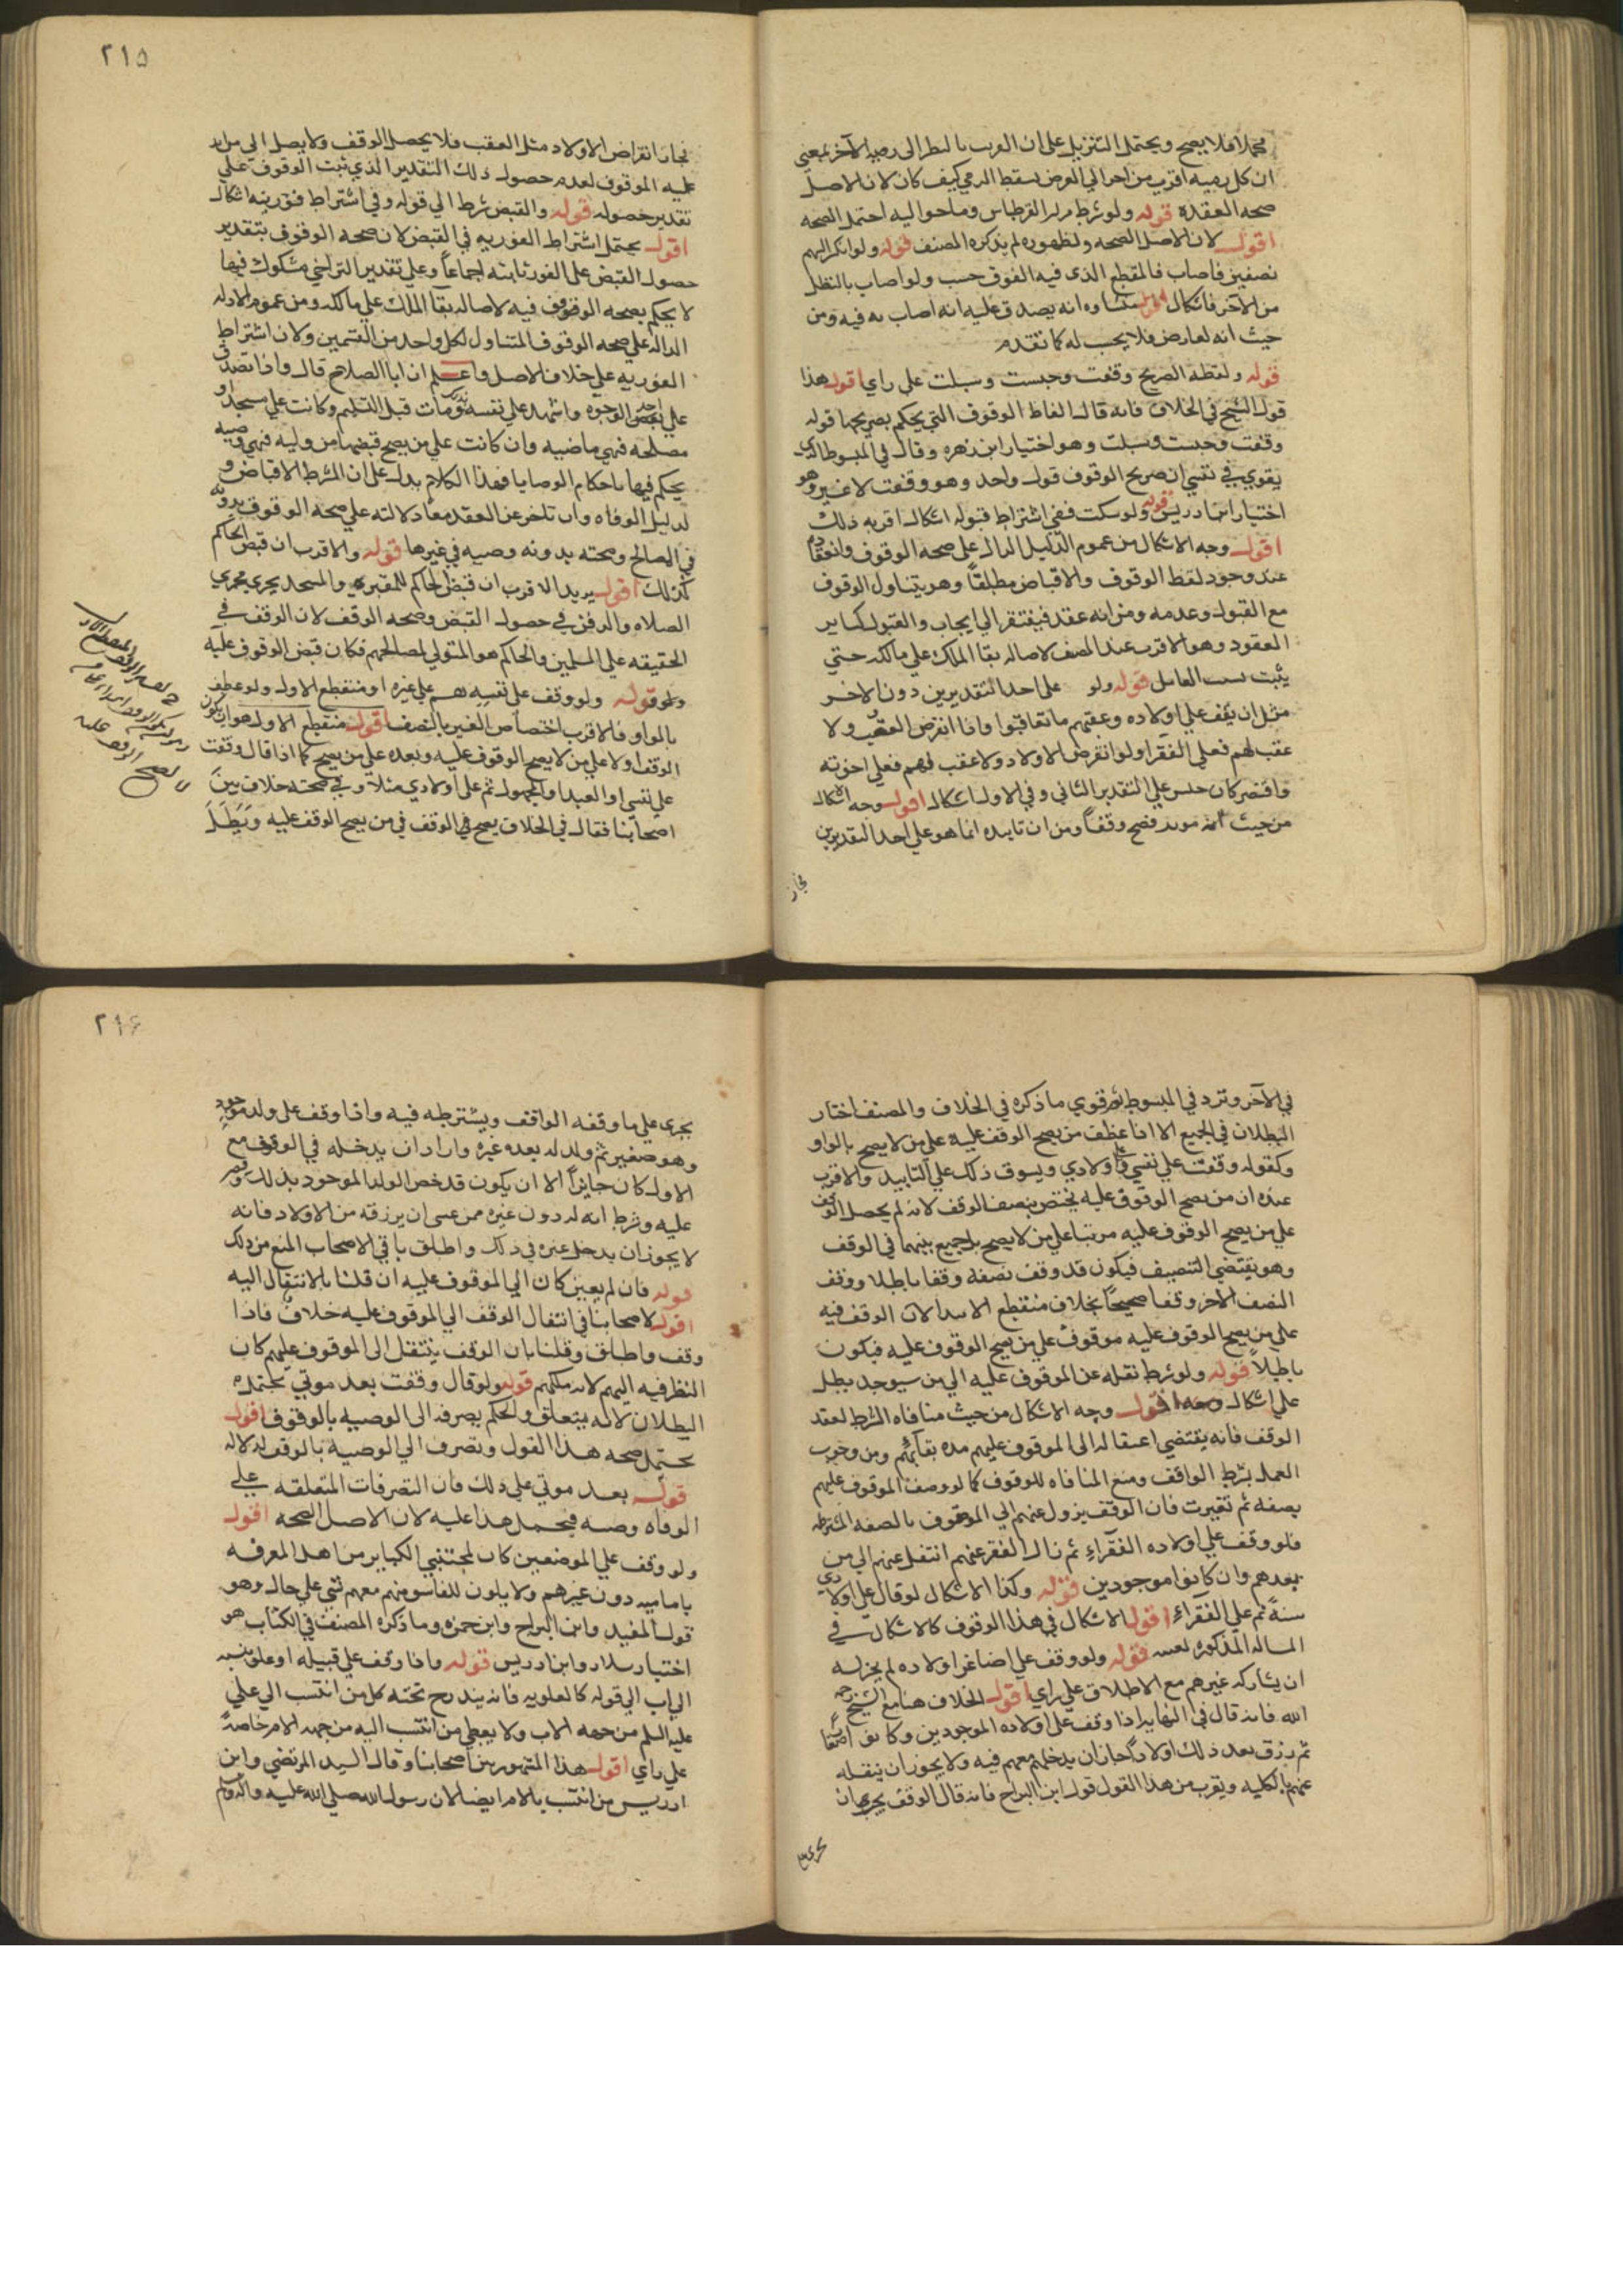 مجملا فلا يصح ويحتمل التنزيل على ان القرب بالنظر الى رميه الآخر بمعنى
ان كل رميه اقرب من اخرى الى الغرض يسقط الرمي كيف كان لان الاصل
صحه العقدة قوله ولو شرط القرطاس وما حواليه احتمل الصحه
اقول لان الاصل الصحه ولظهوره لم يذكره المصنف قوله ولو انكسر السهم
نصفين فاصاب فالمقطع الذي فيه الفوق حسب ولو اصاب بالنظل
من الآخر فاشكال اقول منشاوه انه يصدق عليه انه اصاب به فيه ومن
حيث انه لعارض فلا يحسب له كما تقدم
قوله ولفظه الصريح وقفت وحبست وسبلت على راي اقول هذا
قول الشيخ في الخلاف فانه قال الفاظ الوقوف التي يحكم بصريحها قوله
وقفت وحبست وسبلت وهو اختيار ابن زهره وقال في المبسوط الذي
يقوي في نفسي ان صريح الوقوف قول واحد وهو وقفت لا غير وهو
اختيار ابن ادريس قوله ولو سكت ففي اشتراط قبوله اشكال اقربه ذلك
اقول وجه الاشكال من عموم الدليل الدال على صحه الوقوف وانعقاده
عند وجود لفظ الوقوف والاقباض مطلقاً وهو يتناول الوقوف
مع القبول وعدمه ومن انه عقد فيفتقر الى ايجاب والقبول كساير
العقود وهو الاقرب عند المصنف لاصاله بقا الملك على مالكه حتي
يثبت سبب الناقل قوله ولو على احد التقديرين دون الآخر
مثل ان يقف على اولاده وعقبهم ما تعاقبوا واذا انقرض العقب ولا
عقب لهم فعلى الفقرا ولو انقرض الاولاد ولا عقب لهم فعلى اخوته
واقتصر كان حبس على التقدير الثاني وفي الاول اشكال اقول وجه الاشكال
من حيث انه موبد فصح وقفاً ومن ان تابيده انما هو على احد التقديرين
فجاز
٢١٥
فجاز انقراض الاولاد مثل العقب فلا يحصل الوقف ولا يصل الى من
عليه الموقوف لعدم حصول ذلك التقدير الذي ثبت الوقوف على
تقدير حصوله قوله والقبض شرط الى قوله وفي اشتراط فوريته اشكال
اقول يحتمل اشتراط الفوريه في القبض لان صحه الوقوف بتقدير
حصول القبض على الفور ثابته اجماعاً وعلى تقدير التراخي مشكوك فيها
لا يحكم بصحه الوقوف فيه لاصاله بقا الملك على مالكه ومن عموم الادله
الداله على صحه الوقوف المتناول لكل واحد من القسمين ولان اشتراط
الفوريه على خلاف الاصل واعلم ان ابا الصلاح قال واذا تصدق
على احد الوجوه واشهد على نفسه ومات قبل التسليم وكانت على مسجد او
مصلحه فهي ماضيه وان كانت على من يصح قبضها من وليه فهي وصيه
يحكم فيها باحكام الوصايا فهذا الكلام يدل على ان الشرط الاقباض و
لدليل الوفاه وان تاخر عن العقد معا دلالته على صحه الوقوف بدونه
في المصالح وصحته بدونه وصيه في غيرها قوله والاقرب ان قبض الحاكم
كذلك اقول يريد الاقرب ان قبض الحاكم للمقبره والمسجد يجري مجري
الصلاه والدفن في حصول القبض وصحه الوقف لان الوقف في
الحقيقه على المسلمين والحاكم هو المتولي لمصالحهم فكان قبض الوقوف عليه
قوله ولو وقف على نفسه ثم على غيره او منقطع الاول ولو عطف
بالواو فالاقرب اختصاص الغير بالنصف اقول منقطع الاول هو ان يكون
الوقف اولا على من لا يصح الوقوف عليه وبعده على من يصح كما اذا قال وقفت
على نفسي او العبد او المجهول ثم على اولادي مثلاً وفي صحته خلاف بين
اصحابنا فقال في الخلاف يصح في الوقف في من يصح الوقف عليه ويبطل
في الآخر وترد في المبسوط ثم قوي ما ذكره في الخلاف والمصنف اختار
البطلان في الجميع الا اذا عطف من يصح الوقف عليه على من لا يصح بالواو
وكقوله وقفت على نفسي واولادي ويسوق ذلك على التابيد والاقرب
عنده ان من يصح الوقوف عليه يختص بنصف الوقف لانه لم يحصل الوقف
على من يصح الوقوف عليه مرتبا على من لا يصح بل جمع بينهما في الوقف
وهو يقتضي التنصيف فيكون قد وقف نصفه وقفا باطلا ووقف
النصف الآخر وقفا صحيحاً بخلاف منقطع الابتدا لان الوقف فيه
على من يصح الوقوف عليه موقوف على من يصح الوقوف عليه فيكون
باطلاً قوله ولو شرط نقله عن الموقوف عليه الى من سيوجد بطل
على اشكال اقول وجه الاشكال من حيث منافاه الشرط لعقد
الوقف فانه يقتضي انتقاله الى الموقوف عليهم مده بقآئهم ومن وجوب
العمل بشرط الواقف ومنع المنافاه للوقوف كما لو وصف الموقوف عليهم
بصفه ثم تغيرت فان الوقف يزول عنهم الى الموقوف بالصفه المشترطه
فلو وقف على اولاده الفقرآء ثم زال الفقر عنهم انتقل عنهم الى من
بعدهم وان كانوا موجودين قوله وكذا الاشكال لو قال على اولادي
سنةً ثم على الفقرآء اقول الاشكال في هذا الوقوف كالاشكال في
المساله المذكوره قوله ولو وقف على اصاغر اولاده لم يجز له
ان يشارك غيرهم مع الاطلاق على راي اقول الخلاف هنا مع الشيخ رحمه
الله فانه قال في النهايه اذا وقف على اولاده الموجودين وكانوا صغارا
ثم رزق بعد ذلك اولاداً جاز ان يدخلهم معهم فيه ولا يجوز ان ينقله
عنهم بالكليه ويقرب من هذا القول قول ابن البراج فانه قال الوقف يجري
٢١٦
يجري على ما وقفه الواقف ويشترطه فيه واذا وقف على ولد موجود
وهو صغير ثم ولد له بعده غيره واراد ان يدخله في الوقف مع
الاول كان جايزاً الا ان يكون قد خص الولد الموجود بذلك وقصره
عليه وشرط انه له دون غيره ممن عسى ان يرزقه من الاولاد فانه
لا يجوز ان يدخل غيره في ذلك واطلق باقي الاصحاب المنع من ذلك
قوله فان لم يعين كان الى الموقوف عليه ان قلنا بالانتقال اليه
اقول لاصحابنا في انتقال الوقف الى الموقوف عليه خلاف فاذا
وقف واطلق وقلنا بان الوقف ينتقل الى الموقوف عليهم كان
النظر فيه اليهم لانه ملكهم قوله ولو قال وقفت بعد موتي يحتمل
البطلان لانه يتعلق والحكم بصرفه الى الوصيه بالوقوف اقول
يحتمل صحه هذا القول ويصرف الى الوصيه بالوقف لدلاله
قوله بعد موتي على ذلك فان التصرفات المتعلقه على
الوفاه وصيه فيحمل هذا عليه لان الاصل الصحه اقول
ولو وقف على الموضعين كان لمجتنبي الكباير من اهل المعرفه
بامامته دون غيرهم ولا يكون للفاسق منهم معهم شي على حال وهو
قول المفيد وابن البراج وابن حمزه وما ذكره المصنف في الكتاب هو
اختيار سلار وابن ادريس قوله واذا وقف على قبيله او علق بنسبه
الى اب الى قوله كالعلويه فانه يندرج تحته كل من انتسب الى علي
عليه السلم من جهه الاب ولا يعطى من انتسب اليه من جهه الام خاصةً
على راي اقول هذا المشهور بين اصحابنا وقال السيد المرتضي وابن
ادريس من انتسب بالام ايضا لان رسول الله صلى الله عليه وآله وسلم